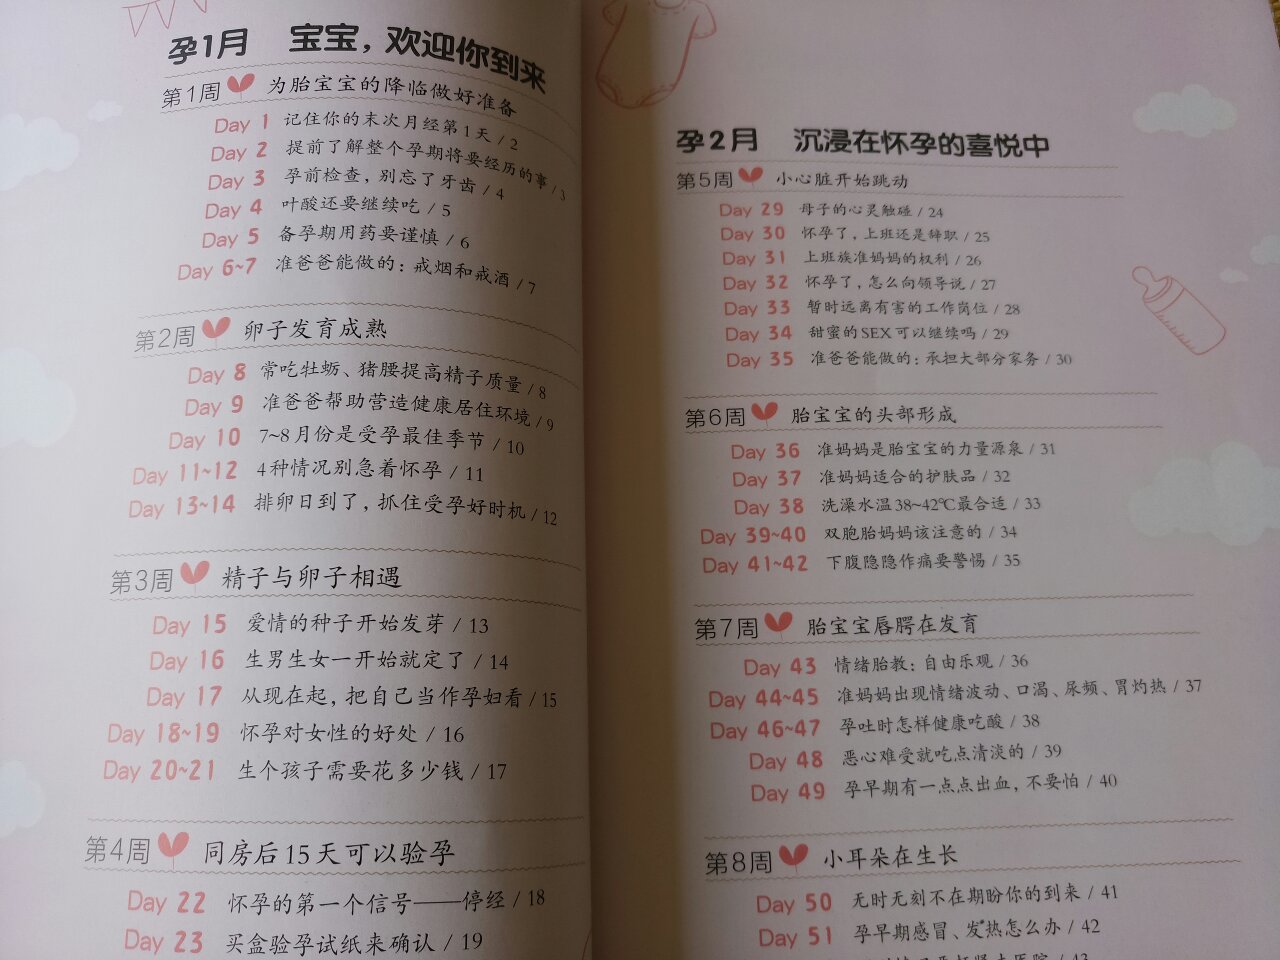 孕1月 宝宝，欢迎你到来
第1周 为胎宝宝的降临做好准备
Day 1 记住你的末次月经第1天 / 2
Day 2 提前了解整个孕期将要经历的事 / 3
Day 3 孕前检查，别忘了牙齿 / 4
Day 4 叶酸还要继续吃 / 5
Day 5 备孕期用药要谨慎 / 6
Day 6~7 准爸爸能做的：戒烟和戒酒 / 7
第2周 卵子发育成熟
Day 8 常吃牡蛎、猪腰提高精子质量 / 8
Day 9 准爸爸帮助营造健康居住环境 / 9
Day 10 7~8月份是受孕最佳季节 / 10
Day 11~12 4种情况别急着怀孕 / 11
Day 13~14 排卵日到了，抓住受孕好时机 / 12
第3周 精子与卵子相遇
Day 15 爱情的种子开始发芽 / 13
Day 16 生男生女一开始就定了 / 14
Day 17 从现在起，把自己当作孕妇看 / 15
Day 18~19 怀孕对女性的好处 / 16
Day 20~21 生个孩子需要花多少钱 / 17
第4周 同房后15天可以验孕
Day 22 怀孕的第一个信号——停经 / 18
Day 23 买盒验孕试纸来确认 / 19
孕2月 沉浸在怀孕的喜悦中
第5周 小心脏开始跳动
Day 29 母子的心灵触碰 / 24
Day 30 怀孕了，上班还是辞职 / 25
Day 31 上班族准妈妈的权利 / 26
Day 32 怀孕了，怎么向领导说 / 27
Day 33 暂时远离有害的工作岗位 / 28
Day 34 甜蜜的SEX可以继续吗 / 29
Day 35 准爸爸能做的：承担大部分家务 / 30
第6周 胎宝宝的头部形成
Day 36 准妈妈是胎宝宝的力量源泉 / 31
Day 37 准妈妈适合的护肤品 / 32
Day 38 洗澡水温38~42℃最合适 / 33
Day 39~40 双胞胎妈妈该注意的 / 34
Day 41~42 下腹隐隐作痛要警惕 / 35
第7周 胎宝宝唇腭在发育
Day 43 情绪胎教：自由乐观 / 36
Day 44~45 准妈妈出现情绪波动、口渴、尿频、胃灼热 / 37
Day 46~47 孕吐时怎样健康吃酸 / 38
Day 48 恶心难受就吃点清淡的 / 39
Day 49 孕早期有一点点出血，不要怕 / 40
第8周 小耳朵在生长
Day 50 无时无刻不在期盼你的到来 / 41
Day 51 孕早期感冒、发热怎么办 / 42